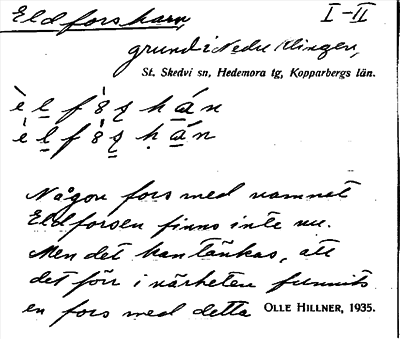 Eldforsharn, I-II
grund i Nedre Klingen,
St. Skedvi sn, Hedemora tg, Kopparbergs län.
Någon fors med namnet
Eldforsen finns inte nu.
Men det kan tänkas, att
det förr i närheten funnits
en fors med detta OLLE HILLNER, 1935.